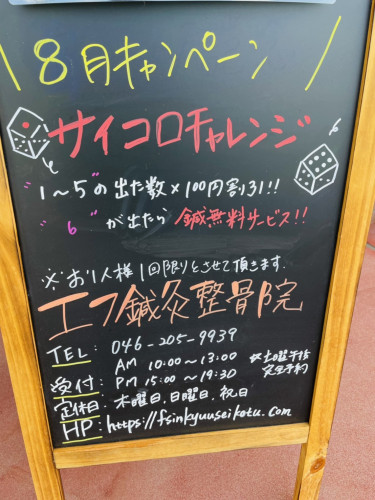 8月キャンペーン
サイコロチャレンジ
"1〜5"の出た数×100円割引!!
"6"が出たら 鍼無料サービス!!
※お1人様1回限りとさせて頂きます.
エフ鍼灸整骨院
TEL: 046-205-9939
受付: AM 10:00〜13:00
PM 15:00〜19:30
※土曜午後
完全予約
定休日: 木曜日、日曜日、祝日
HP: https://fsinkyuuseikotu.com